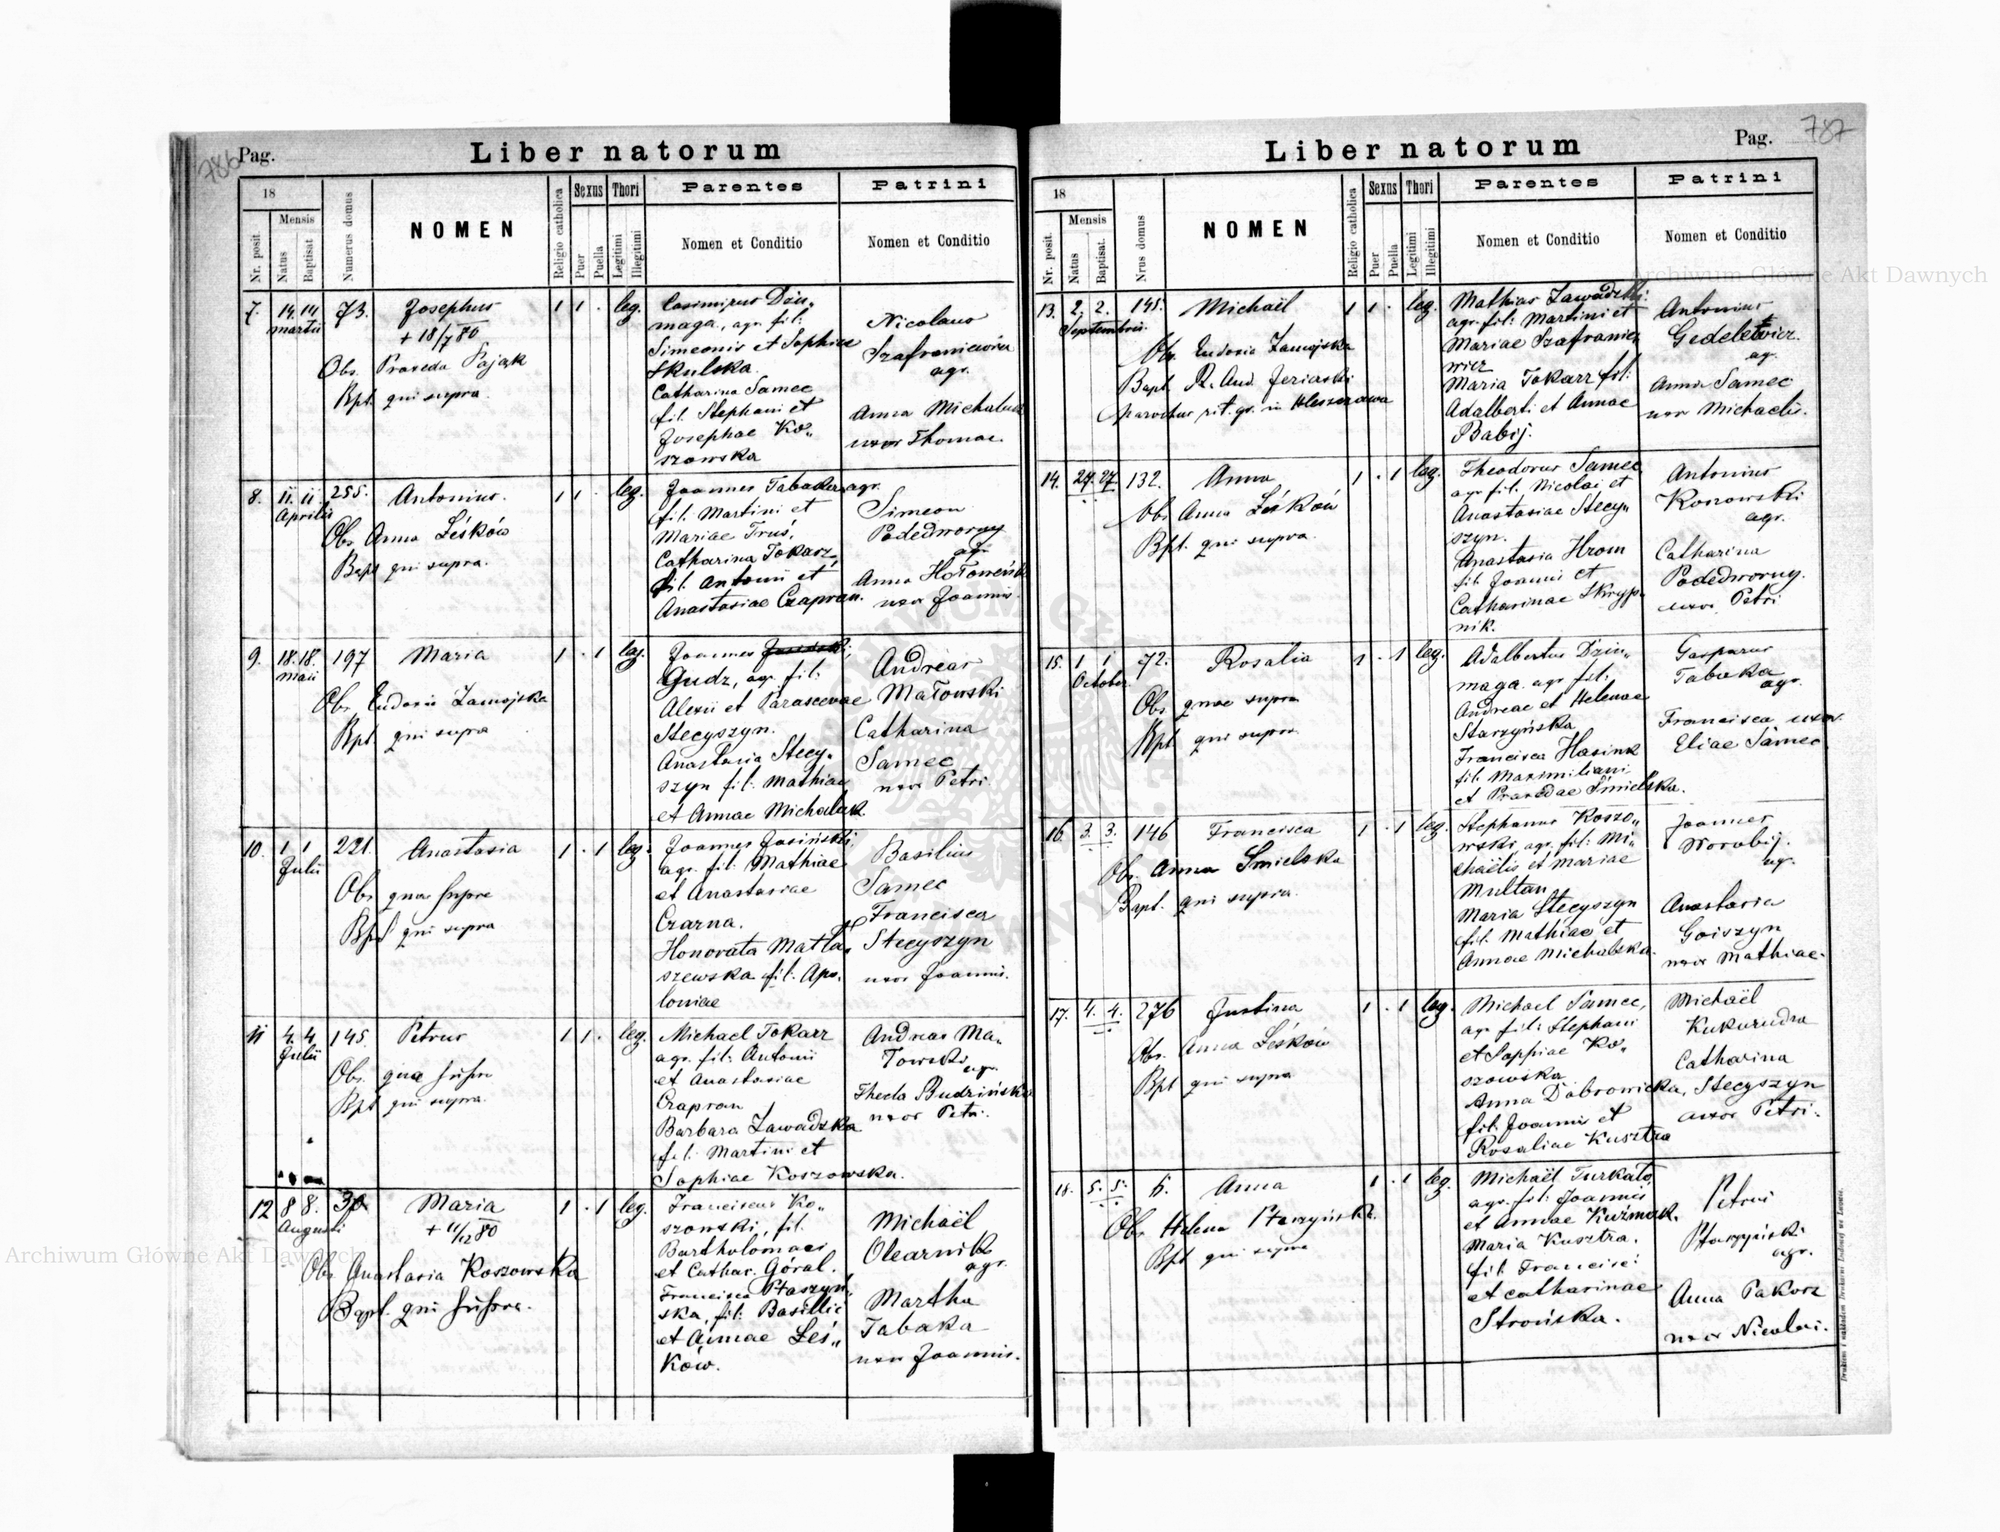 786
Pag.
Liber natorum
18
Nr. posit.
Mensis
Natus
Baptisat
Numerus domus
NOMEN
Religio catholica
Sexus
Puer
Puella
Thori
Legitimi
Illegitimi
Parentes
Nomen et Conditio
Patrini
Nomen et Conditio
7. 14. 14. 73. Josephus 1 1 . leg.
martii + 18/7 80
Obs. Praxeda Pająk
Bpt. qui supra
Casimirus Dziu„
maga, agr. fil:
Simeonis et Sophiae
Skulska.
Catharina Samec
fil. Stephani et
Josephae Ko„
szowska
Nicolaus
Szafraniewicz
agr.
Anna Michaluk
uxor Thomae.
8. 11. 11. 255. Antonius. 1 1 . leg.
Aprilis
Obs Anna Léśków
Bapt qui supra.
Joannes Tabaka, agr.
fil. Martini et
Mariae Truś,
Catharina Tokarz,
fil. Antonii et
Anastasiae Czapran.
Simeon
Podedworny
agr.
Anna
uxor Joannis.
9. 18. 18. 197 Maria 1 . 1 leg.
maii
Obs. Eudoxia Zamojska
Bpt. qui supra
Joannes
Gudz, agr. fil:
Alexii et Parascevae
Stecyszyn.
Anastasia Stecy„
szyn fil: Mathiae
et Annae Michaluk.
Andreas
Małowski
Catharina
Samec
uxor Petri
10. 1 1 221. Anastasia 1 . 1 leg.
Julii
Obs quae supra
Bpt qui supra
Joannes Jasiński
agr. fil: Mathiae
et Anastasiae
Czarna.
Honorata Matła„
szewska fil: Apo„
loniae
Basilius
Samec
et Francisca
Stecyszyn
uxor Joannis.
11 4. 4. 145. Petrus 1 1 . leg.
Julii
Obs. quae supra
Bpt qui supra.
Michael Tokarz
agr. fil: Antonii
et Anastasiae
Czapran
Barbara Zawadzka
fil: Martini et
Sophiae Koszowska.
Andreas Ma„
łowski
agr.
Thecla Budzińska
uxor Petri.
12 8 8. Maria 1 . 1 leg.
Augusti + 11/12 80
Obs Anastasia Koszowska
Bapt. qui supra.
Franciscus Ko„
szowski, fil.
Bartholomaei
et Cathar. Góral.
Francisca Ptaszyń„
ska, fil: Basilii
et Annae Leś„
ków.
Michaël
Olearnik
agr.
Martha
Tabaka
uxor Joannis.
Liber natorum
Pag.
787
18
Nr. posit.
Mensis
Natus
Baptisat.
Nrus domus
NOMEN
Religio catholica
Sexus
Puer
Puella
Thori
Legitimi
Illegitimi
Parentes
Nomen et Conditio
Patrini
Nomen et Conditio
13. 2. 2. 145. Michaël 1 1 . leg.
Septembris.
Obs. Eudoxia Zamojska
Bapt. R. And. Jeziarski
parochus rit. gr. in
Mathias Zawadzki
agr. fil: Martini et
Mariae Szafranie
wicz
Maria Tokarz fil:
Adalberti et Annae
Babij.
Antonius
Gedeletwicz.
ag.
Anna Samec
uxor Michaelis.
14. 27. 27. 132. Anna 1 . 1 leg.
Obs Anna Léśków
Bpt. qui supra.
Theodorus Samec
agr fil. Nicolai et
Anastasiae Stecy„
szyn.
Anastasia Hrom
fil. Joannis et
Catharinae Skryp„
nik.
Antonius
Koszowski
agr.
Catharina
Podedworny.
uxor Petri
15. 1 1 72. Rosalia 1 . 1 leg.
October.
Obs quae supra
Bpt qui supra.
Adalbertus Dziu„
maga. agr fil:
Andreae et Helenae
Starzyńska
Francisca Hasiuk
fil: Maximiliani
et Praxedae Śmielska.
Gasparus
Tabaka
agr.
Francisca uxor
Eliae Samec
16. 3. 3. 146 Francisca 1 . 1 leg.
Obs. Anna Śmielska
Bapt. qui supra.
Stephanus Koszo„
wski agr. fil: Mi„
chaëlis et Mariae
Multan
Maria Stecyszyn
fil. Mathiae et
Annae Michalska.
Joannes
Worobij.
agr.
Anastasia
Goiszyn
uxor Mathiae.
17. 4. 4. 276 Justina 1 . 1 leg.
Obs. Anna Léśków
Bpt qui supra
Michael Samec,
agr fil: Stephani
et Sophiae Ko„
szowska
Anna Dabrowicka,
fil: Joannis et
Rosaliae Kusztra
Michaël
Kukurudza
Catharina
Stecyszyn
uxor Petri.
18. 5. 5. 6. Anna 1 . 1 leg.
Obs Helena Ptaszyńska.
Bpt qui supra
Michaël Turkało,
agr. fil: Joannis
et Annae Kuźmiak.
Maria Kusztra.
fil: Francisci
et Catharinae
Strońska.
Petrus
Ptaszyński
agr.
Anna Pakosz
uxor Nicolai.
Drukiem i nakładem Drukarni Ludowej we Lwowie.
Archiwum Główne Akt Dawnych
Archiwum Główne Akt Dawnych